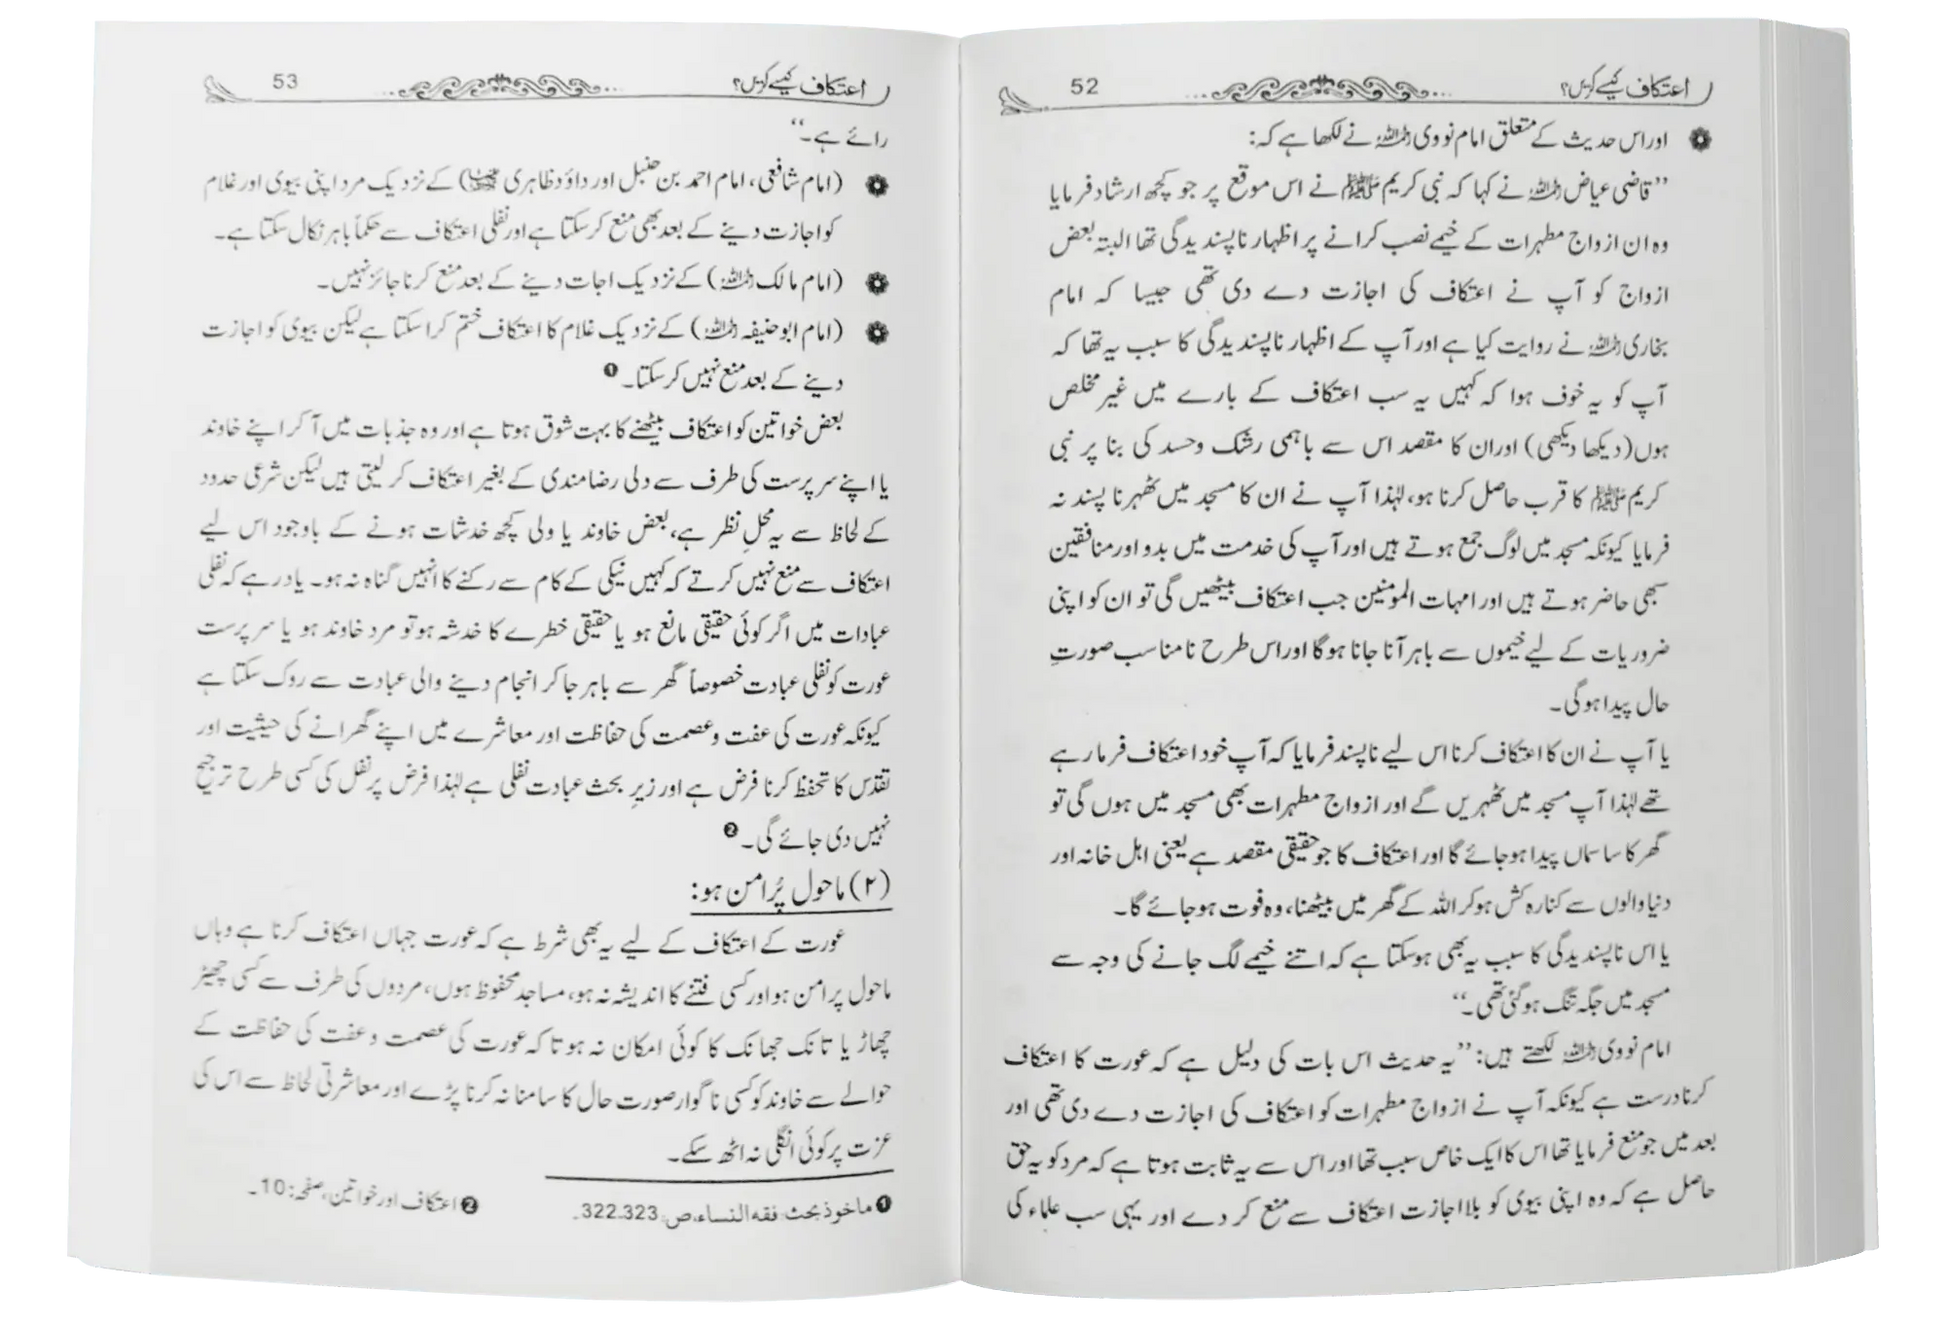 اعتکاف کیسے کریں؟ 52
اور اس حدیث کے متعلق امام نووی رحمہ اللہ نے لکھا ہے کہ:
’’قاضی عیاض رحمہ اللہ نے کہا کہ نبی کریم ﷺ نے اس موقع پر جو کچھ ارشاد فرمایا
وہ ان ازواج مطہرات کے خیمے نصب کرانے پر اظہار ناپسندیدگی تھا البتہ بعض
ازواج کو آپ نے اعتکاف کی اجازت دے دی تھی جیسا کہ امام
بخاری رحمہ اللہ نے روایت کیا ہے اور آپ کے اظہار ناپسندیدگی کا سبب یہ تھا کہ
آپ کو یہ خوف ہوا کہ کہیں یہ سب اعتکاف کے بارے میں غیر مخلص
ہوں (دیکھا دیکھی) اور ان کا مقصد اس سے باہمی رشک وحسد کی بنا پر نبی
کریم ﷺ کا قرب حاصل کرنا ہو، لہٰذا آپ نے ان کا مسجد میں ٹھہرنا پسند نہ
فرمایا کیونکہ مسجد میں لوگ جمع ہوتے ہیں اور آپ کی خدمت میں بدو اور منافقین
سبھی حاضر ہوتے ہیں اور امہات المومنین جب اعتکاف بیٹھیں گی تو ان کو اپنی
ضروریات کے لیے خیموں سے باہر آنا جانا ہوگا اور اس طرح نامناسب صورتِ
حال پیدا ہوگی۔
یا آپ نے ان کا اعتکاف کرنا اس لیے ناپسند فرمایا کہ آپ خود اعتکاف فرما رہے
تھے لہٰذا آپ مسجد میں ٹھہریں گے اور ازواج مطہرات بھی مسجد میں ہوں گی تو
گھر کا سا سماں پیدا ہوجائے گا اور اعتکاف کا جو حقیقی مقصد ہے یعنی اہل خانہ اور
دنیا والوں سے کنارہ کش ہوکر اللہ کے گھر میں بیٹھنا، وہ فوت ہوجائے گا۔
یا اس ناپسندیدگی کا سبب یہ بھی ہوسکتا ہے کہ اتنے خیمے لگ جانے کی وجہ سے
مسجد میں جگہ تنگ ہوگئی تھی۔‘‘
امام نووی رحمہ اللہ لکھتے ہیں: ’’یہ حدیث اس بات کی دلیل ہے کہ عورت کا اعتکاف
کرنا درست ہے کیونکہ آپ نے ازواج مطہرات کو اعتکاف کی اجازت دے دی تھی اور
بعد میں جو منع فرمایا تھا اس کا ایک خاص سبب تھا اور اس سے یہ ثابت ہوتا ہے کہ مرد کو یہ حق
حاصل ہے کہ وہ اپنی بیوی کو بلا اجازت اعتکاف سے منع کر دے اور یہی سب علماء کی
اعتکاف کیسے کریں؟ 53
رائے ہے۔‘‘
(امام شافعی، امام احمد بن حنبل اور داؤد ظاہری رحمہم اللہ) کے نزدیک مرد اپنی بیوی اور غلام
کو اجازت دینے کے بعد بھی منع کرسکتا ہے اور نفلی اعتکاف سے حکماً باہر نکال سکتا ہے۔
(امام مالک رحمہ اللہ) کے نزدیک اجات دینے کے بعد منع کرنا جائز نہیں۔
(امام ابوحنیفہ رحمہ اللہ) کے نزدیک غلام کا اعتکاف ختم کراسکتا ہے لیکن بیوی کو اجازت
دینے کے بعد منع نہیں کرسکتا۔ ❶
بعض خواتین کو اعتکاف بیٹھنے کا بہت شوق ہوتا ہے اور وہ جذبات میں آکر اپنے خاوند
یا اپنے سرپرست کی طرف سے دلی رضامندی کے بغیر اعتکاف کر لیتی ہیں لیکن شرعی حدود
کے لحاظ سے یہ محلِ نظر ہے، بعض خاوند یا ولی کچھ خدشات ہونے کے باوجود اس لیے
اعتکاف سے منع نہیں کرتے کہ کہیں نیکی کے کام سے رکنے کا انہیں گناہ نہ ہو۔ یاد رہے کہ نفلی
عبادات میں اگر کوئی حقیقی مانع ہو یا حقیقی خطرے کا خدشہ ہو تو مرد خاوند ہو یا سرپرست
عورت کو نفلی عبادت خصوصاً گھر سے باہر جا کر انجام دینے والی عبادت سے روک سکتا ہے
کیونکہ عورت کی عفت وعصمت کی حفاظت اور معاشرے میں اپنے گھرانے کی حیثیت اور
تقدّس کا تحفظ کرنا فرض ہے اور زیرِ بحث عبادت نفلی ہے لہٰذا فرض پر نفل کی کسی طرح ترجیح
نہیں دی جائے گی۔ ❷
(۲) ماحول پُرامن ہو:
عورت کے اعتکاف کے لیے یہ بھی شرط ہے کہ عورت جہاں اعتکاف کرنا ہے وہاں
ماحول پرامن ہو اور کسی فتنے کا اندیشہ نہ ہو، مساجد محفوظ ہوں، مردوں کی طرف سے کسی چھیڑ
چھاڑ یا تانک جھانک کا کوئی امکان نہ ہو تاکہ عورت کی عصمت وعفت کی حفاظت کے
حوالے سے خاوند کو کسی ناگوار صورت حال کا سامنا نہ کرنا پڑے اور معاشرتی لحاظ سے اس کی
عزت پر کوئی انگلی نہ اٹھ سکے۔
❶ ماخوذ بحث: فقہ النساء، ص: 322،323۔ ❷ اعتکاف اور خواتین، صفحہ: 10۔